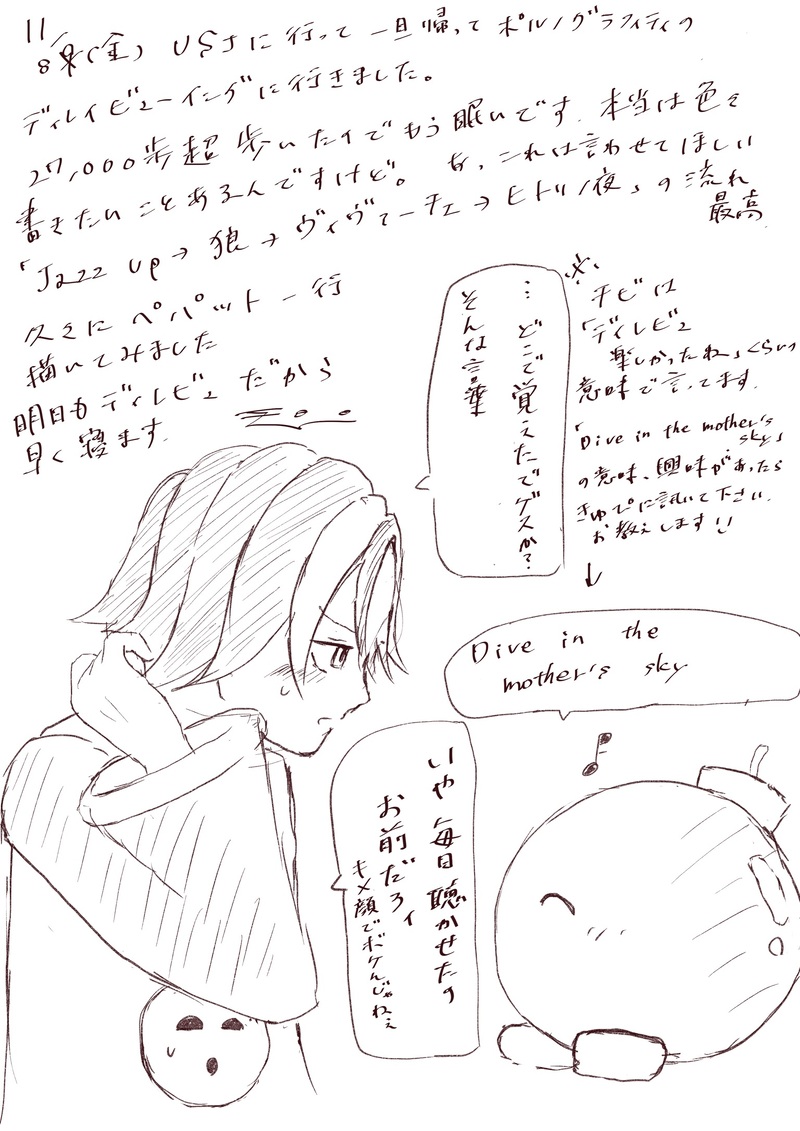 11/8(金) USJに行って一旦帰ってポルノグラフィティの
ディレイビューイングに行きました。
27,000歩超歩いたのでもう眠いです.本当は色々
書きたいことあるんですけど。 あ、これは言わせてほしい
「Jazz up→狼→ヴィヴァーチェ→ヒトリノ夜」の流れ
最高
久々にペパット一行
描いてみました
明日もディレビュだから
早く寝ます.
※チビは
「ディレビュ
楽しかったね」くらいの
意味で言ってます.
「Dive in the mother's
sky」
の意味、興味があったら
きゅぴに訊いて下さい.
お教えします!!
↓
…どこで覚えたでゲスか?
そんな言葉
Dive in the
mother's sky
いや毎日聴かせたの
お前だろィ
キメ顔でボケんじゃねぇ